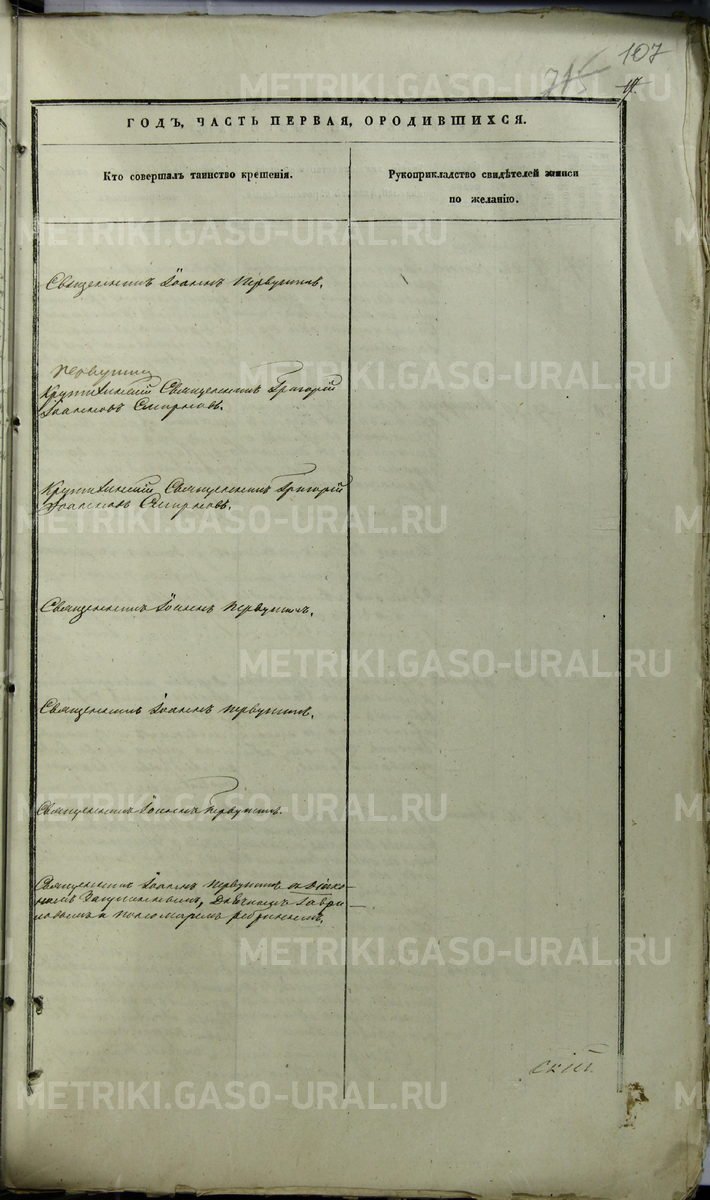 107
215
ГОДЪ, ЧАСТЬ ПЕРВАЯ, О РОДИВШИХСЯ.
Кто совершалъ таинство крещенія.
Рукоприкладство свидѣтелей записи
по желанію.
Священникъ Іоаннъ Первушинъ.
Первушин
Крутихинскій Священникъ Григорій
Іоанновъ Смирновъ.
Крутихинскій Священникъ Григорій
Іоанновъ Смирновъ.
Священникъ Іоаннъ Первушинъ.
Священникъ Іоаннъ Первушинъ.
Священникъ Іоаннъ Первушинъ.
Священникъ Іоаннъ Первушинъ съ Діако-
номъ, Дьячкомъ Гаври-
ловымъ и Пономаремъ
METRIKI.GASO-URAL.RU